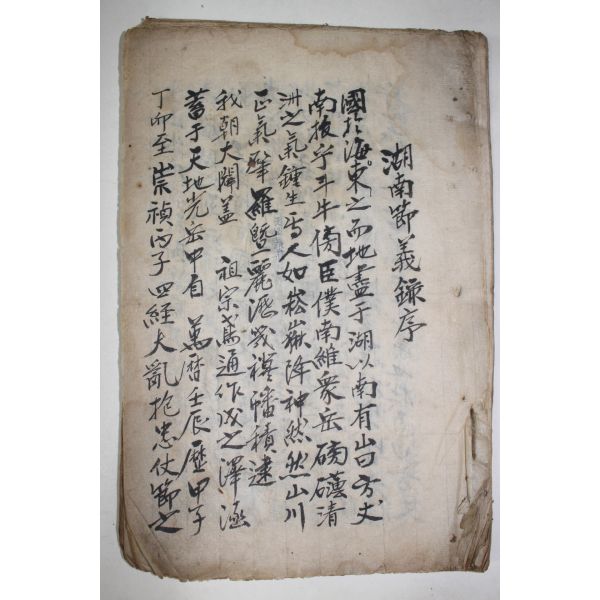 湖南節義錄序
國於海東之而地盡于湖以南有山曰方丈
南抜乎斗牛傍臣僕南維衆岳磅礴清
洲之氣鍾生焉人如崧嶽降神然然山川
正氣肇羅曁麗歷幾禩蟠積逮
我朝大闡盖 祖宗鳶通作成之澤涵
蓄于天地光岳中自 萬曆壬辰歷甲子
丁卯至 崇禎丙子四經大亂抱忠仗節之